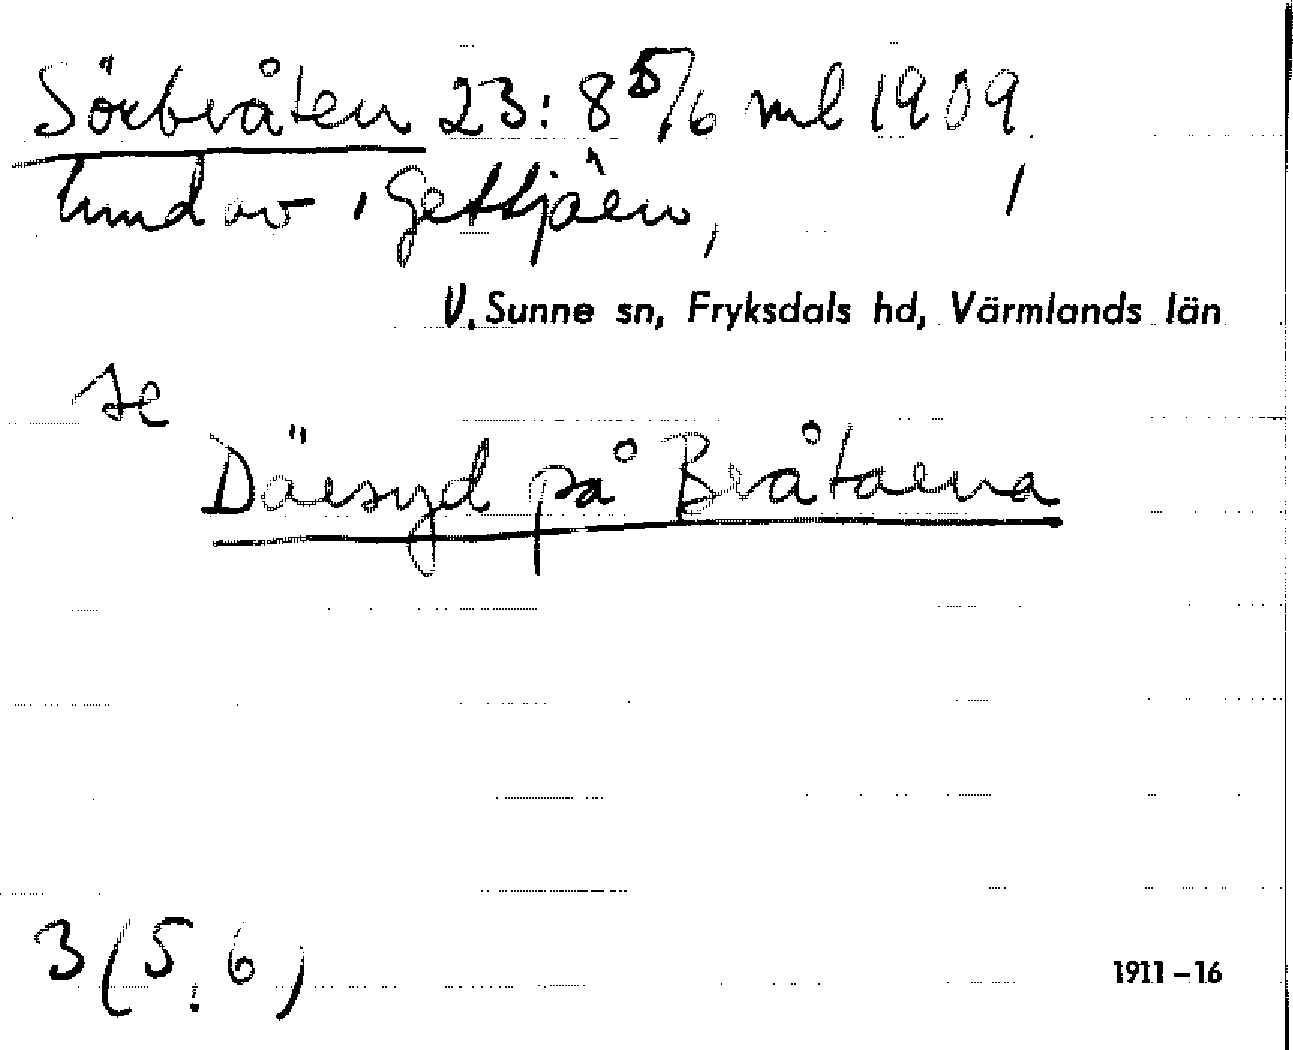 Sörbråten 23:8 5/6 ml 1909
lund av i Gettjärn,
V. Sunne sn, Fryksdals hd, Värmlands län
se
Därsyd på Bråtarna
3 (5.6)
1911–16